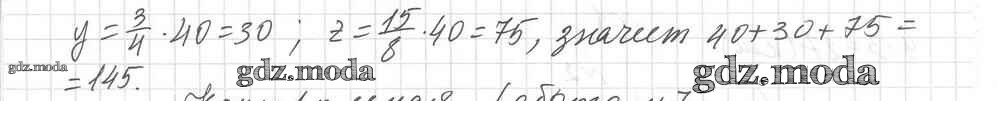 y = 3/4 · 40 = 30 ; z = 15/8 · 40 = 75, значит 40 + 30 + 75 =
= 145.
gdz.moda
gdz.moda
gdz.moda